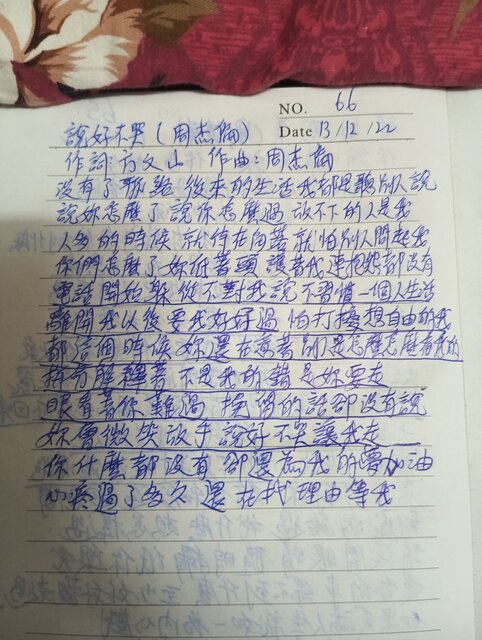 NO. 66
說好不哭(周杰倫)
Date 13/12/22
作詞:方文山 作曲:周杰倫
沒有了聯絡 後來的生活我都是聽別人說
說妳怎麼了說你怎麼過 放不下的人是我
人多的時候 就待在角落 就怕別人問起我
你們怎麼了 妳低著頭 護著我連抱怨都沒有
電話開始躲 從不對我說 不習慣一個人生活
離開我以後 要我好好過 怕打擾想自由的我
都這個時候 妳還在意著 別是怎麼怎麼看我的
拚命解釋著 不是我的錯是妳要走
眼看著你難過 挽留的話卻沒有說
妳會微笑放手 說好不哭讓我走
你什麼都沒有 卻還為我的夢加油
心疼過了多久 還在找理由等我